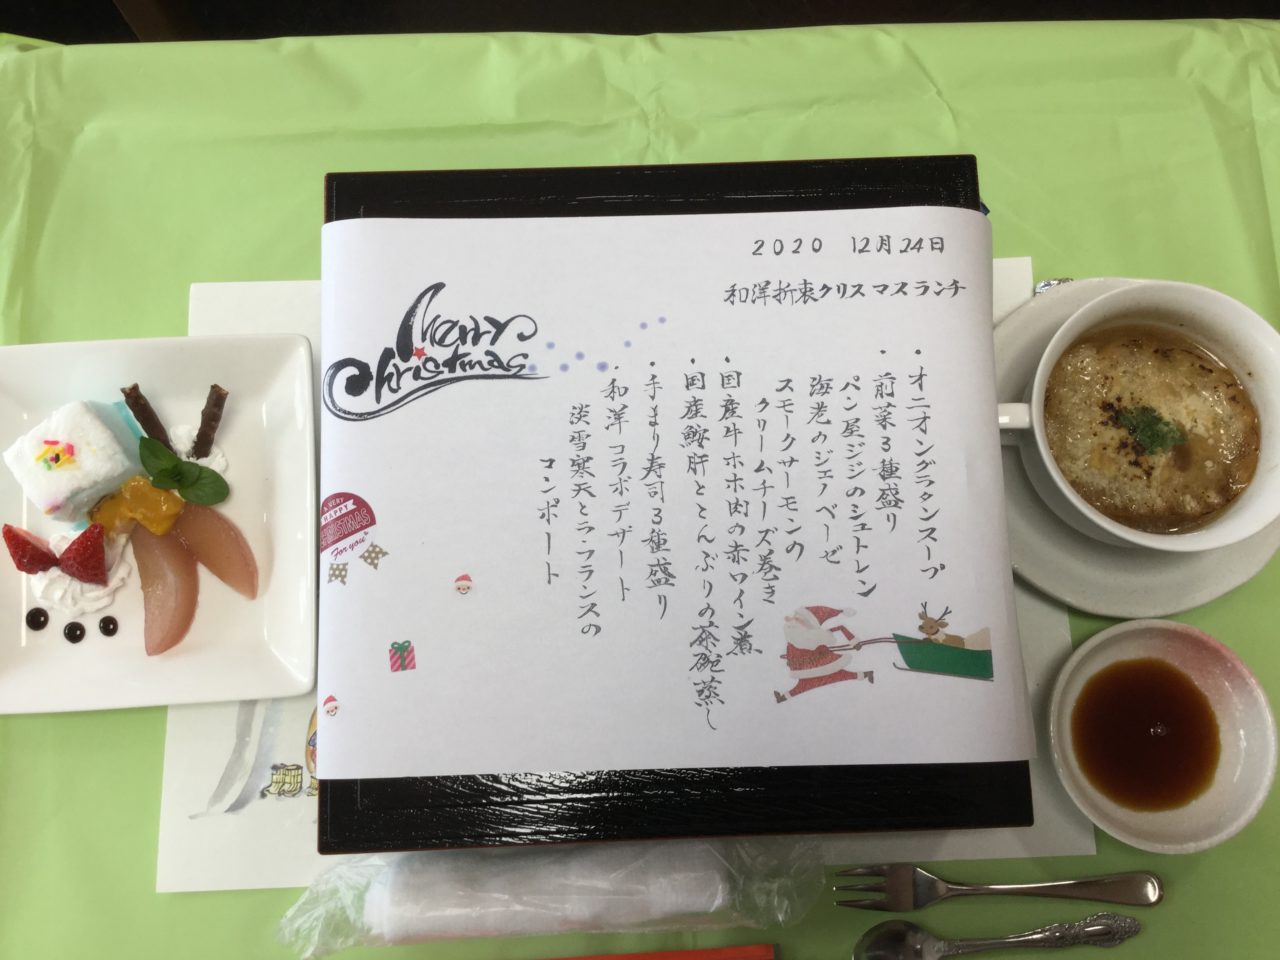 2020 12月24日
和洋折衷クリスマスランチ
Merry
Christmas
・オニオングラタンスープ
・前菜3種盛り
パン屋ジジのシュトレン
海老のジェノベーゼ
スモークサーモンの
クリームチーズ巻き
・国産牛ホホ肉の赤ワイン煮
・国産鮟肝ととんぶりの茶碗蒸し
・手まり寿司3種盛り
・和洋コラボデザート
淡雪寒天とラ・フランスの
コンポート
A VERY
HAPPY
CHRISTMAS
For you